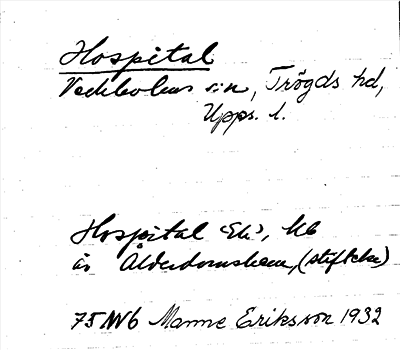 Hospital
Veckholms sn, Trögds hd,
Upps. l.
Hospital Ek, kb
är Ålderdomshem, (stiftelse)
75 NV6 Manne Eriksson 1932